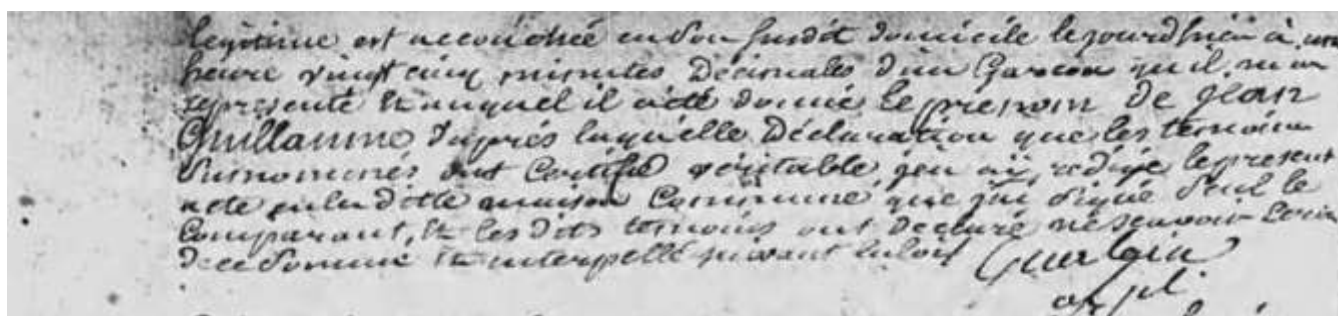 legitime est accouchée en son susdit domicile lejourdhieu à une
heure vingt cinq minutes Décimales d'un Garcon qu'il m'a
représenté & auquel il a été donné le prénom de Jean
Guillaume d'après laquelle Déclaration que les temoins
surnommés ont Certifié véritable j'en ai rédigé le present
acte en la ditte maison Commune que j'ai signé seul le
Comparant, & les dits temoins ont declaré ne scavoir Ecrire
de ce sommé & interpellé suivant la loi